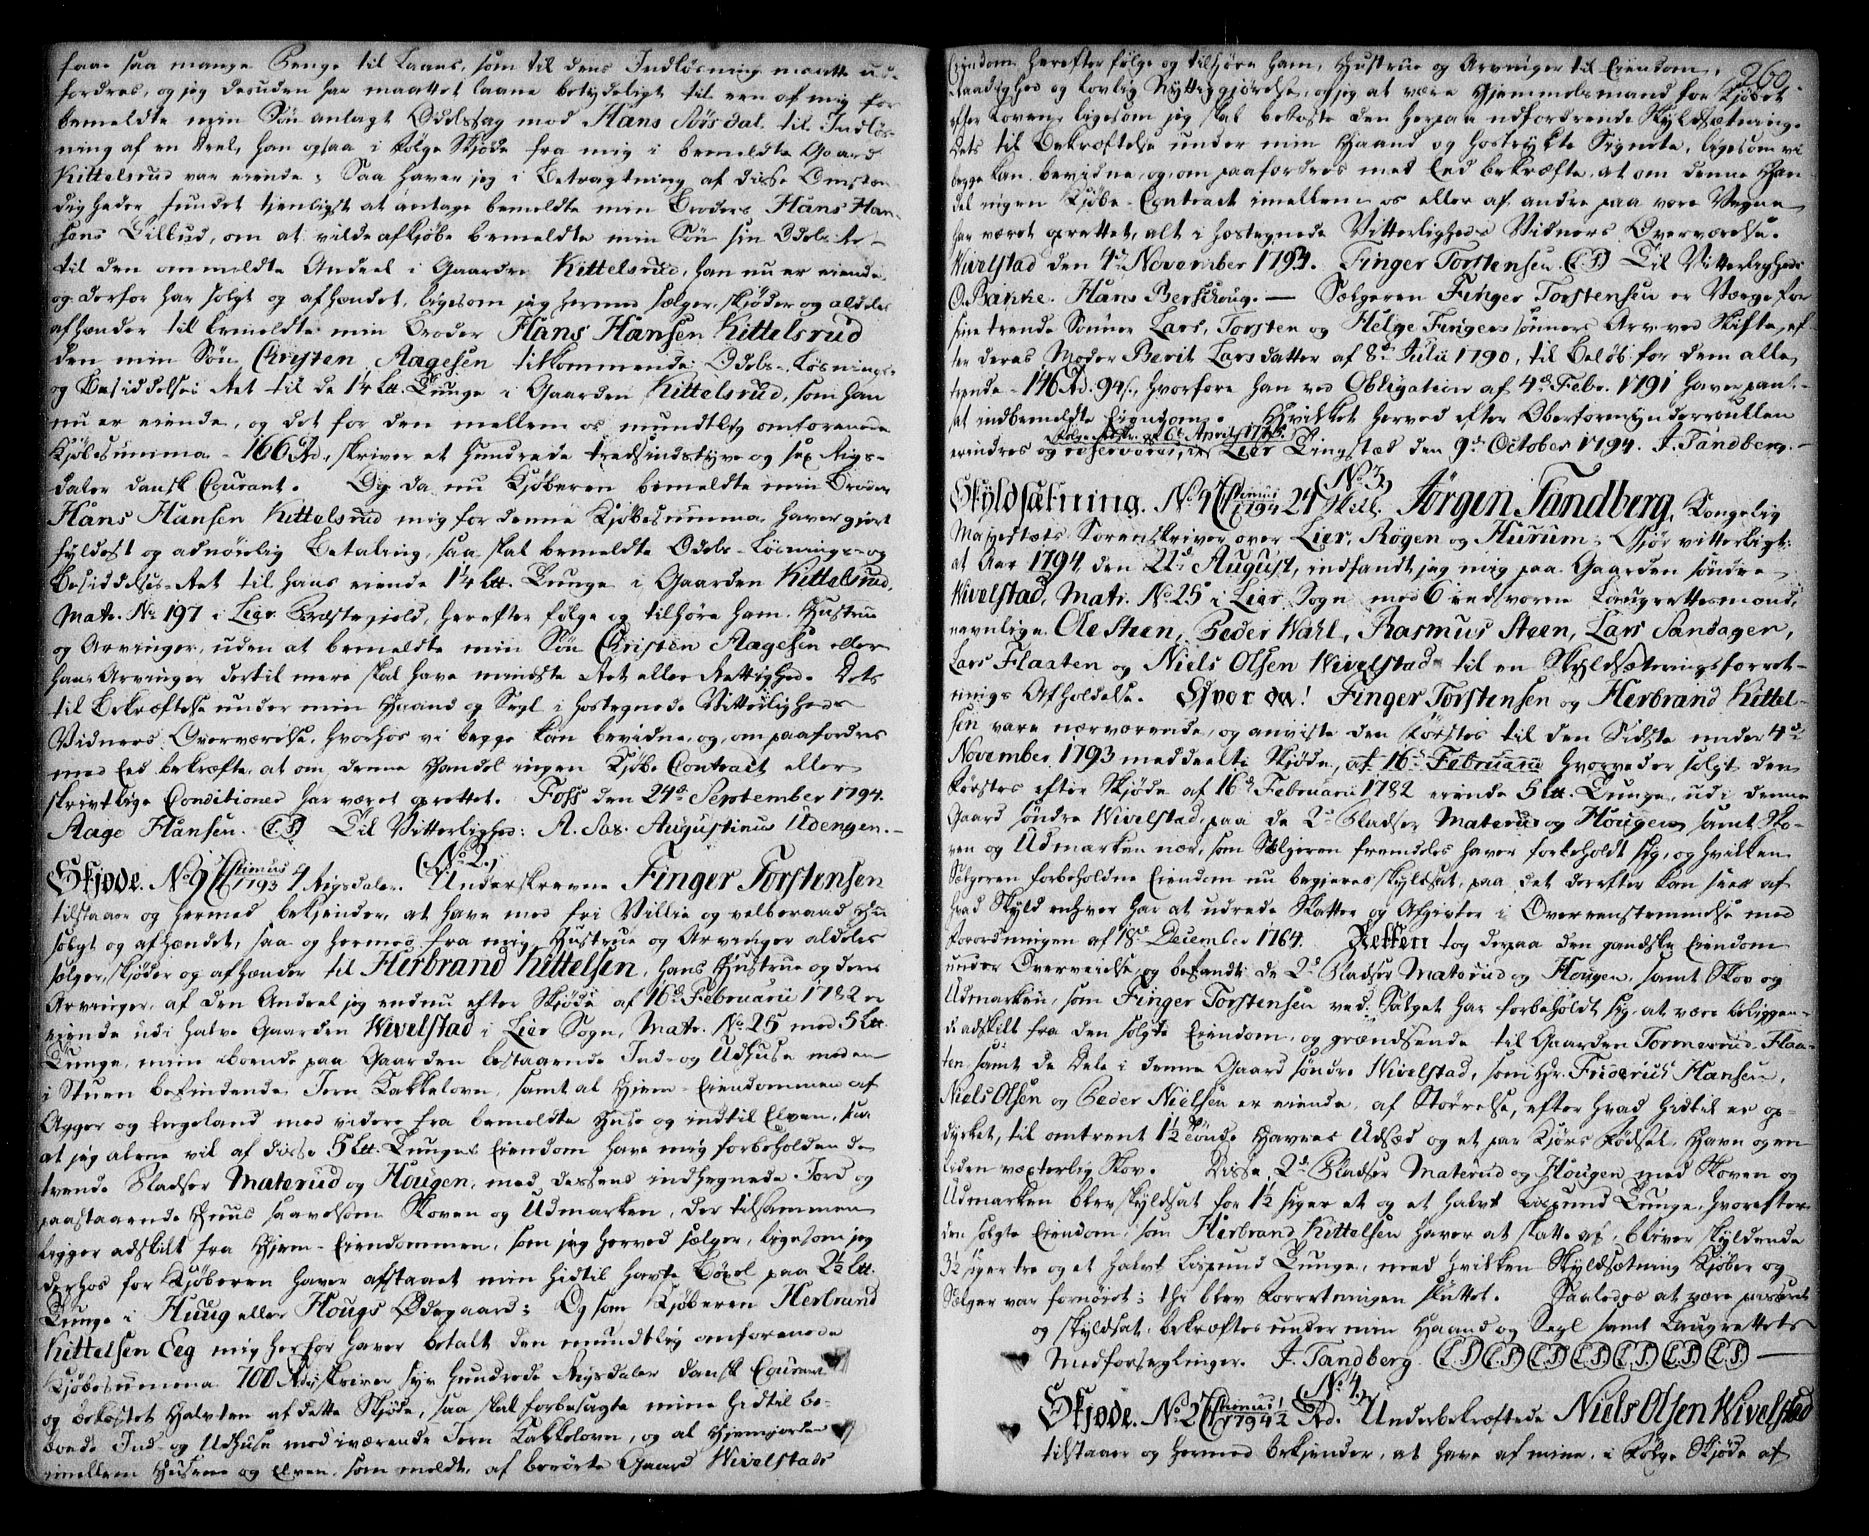 faae saa mange Penge til Laans, som til dens Indløsning maatte ud-
fordres, og jeg desuden har maattet laane betydeligt til een af mig for
bemeldte min Søn anlagt Odelssag mod Hans Sørsdal til Indløs-
ning af en Deel, han ogsaa i Følge Skjøde fra mig i bemeldte Gaard
Kittelsrud var eiende; Saa haver jeg i Betragtning af disse Omstæn-
digheder fundet tienligst at antage bemeldte min Broder Hans Han-
sens Tilbud, om at vilde afkjøbe bemeldte min Søn sin Odels-Ret
til den ommeldte Andeel i Gaarden Kittelsrud, han nu er eiende
og derfor har solgt og afhændet, ligesom jeg hermed sælger, skjøder og aldeles
afhænder til bemeldte min Broder Hans Hansen Kittelsrud
den min Søn Christen Aagesen tilkommende Odels-Løsnings-
og Besiddelses Ret til de 14 Lit. Tunge i Gaarden Kittelsrud, som han
nu er eiende, og det for den mellem os mundtlig omforenede
Kjøbesumma - 166 Rd., skriver et Hundrede Tredsindstyve og sex Rigs-
daler dansk Courant. Og da nu Kjøberen bemeldte min Broder
Hans Hansen Kittelsrud mig for denne Kjøbesumma haver gjort
fyldest og adnøielig Betaling, saa skal bemeldte Odels-Løsnings- og
Besiddelses-Ret til hans eiende 14 Lit. Tunge i Gaarden Kittelsrud,
Matr. No 197 i Lier Præstegield, herefter følge og tilhøre ham, Hustrue
og Arvinger, uden at bemeldte min Søn Christen Aagesen eller
hans Arvinger dertil mere skal have mindste Ret eller Rettighed. Dets
til Bekræftelse under min Haand og Segl i hostegnede Vitterligheds
Vidners Overværelse, hvorhos vi begge kan bevidne, og, om paafordres
med Eed bekræfte, at om denne Handel ingen Kjøbe Contract eller
skrivtlige Conditioner har været oprettet. Foss den 24de September 1794.
Aage Hansen. (L.S.) Til Vitterlighed: A. Sax. Augustinus Udengen.
No 2.
Skjøde. No 9 Stemus 1793 4 Rigsdaler. Underskrevne Finger Torstensen
tilstaaer og hermed bekjender, at have med fri Villie og velberaad Hu
solgt og afhændet, saa og hermed fra mig, Hustrue og Arvinger aldeles
sælger, skjøder og afhænder til Herbrand Kittelsen, hans Hustrue og deres
Arvinger, af den Andeel jeg endnu efter Skjøde af 16de Februarii 1782 er
eiende udi halve Gaarden Wivelstad i Lier Sogn, Matr. No 25 med 5 Lit.
Tunge, mine iboende paa Gaarden bestaaende Ind- og Udhuse med en
i Stuen befindende Jern Kakkelovn, samt al Hjem-Eiendommen af
Agger og Engeland med videre fra bemeldte Huse og indtil Elven, saa
at jeg alene vil af disse 5 Lit. Tunges Eiendom have mig forbeholden de
tvende Pladser Materud og Hougen, med dessens indhegnede Jord og
paastaaende Huus saavelsom Skoven og Udmarken, der tilsammen
ligger adskilt fra Hjem-Eiendommen, som jeg herved sælger, ligesom jeg
derhos for Kjøberen haver afstaaet min hidtil havte Bøxel paa 2½ Lit.
Tunge i Huug eller Hougs Ødegaard; Og som Kjøberen Herbrand
Kittelsen Eeg mig herfor haver betalt den mundtlig omforenede
Kjøbesumma 700 Rd, skriver syv hundrede Rigsdaler dansk Courant
og bekostet Halvten af dette Skjøde, saa skal forbesagte mine hidtil be-
boende Ind- og Udhuse med iværende Jern Kakkelovn, og al Hjemjorden
imellem Husene og Elven, som meldt, af berørte Gaard Wivelstads
260.
Eiendom herefter følge og tilhøre ham, Hustrue og Arvinger til Eiendom,
Raadighed og lovlig Nyttiggjørelse, og jeg at være Hjemmelsmand for Kjøbet
efter Loven, ligesom jeg skal bekoste den herpaa udfordrende Skyldsætning.
Dets til Bekræftelse under min Haand og hostrykte Signete, ligesom vi
begge kan bevidne, og, om paafordres med Eed bekræfte, at om denne Han-
del ingen Kjøbe-Contract imellem os eller af andre paa vore Vegne
har været oprettet, alt i hostegnede Vitterligheds Vidners Overværelse.
Wivelstad den 4de November 1793. Finger Torstensen (L.S.) Til Vitterlighed:
O. Bakke. Hans Berschoug. — Sælgeren Finger Torstensen er Værge for
sine trende Sønner Lars, Torsten og Helge Fingers sønners Arv ved Skifte ef-
ter deres Moder Berit Larsdatter af 8de Julii 1790, til Beløb for dem alle
trende - 146 Rd. 94 s., hvorfore han ved Obligation af 4de Febr. 1791 haver pant-
sat indbemeldte Eiendom. Hvilket herved efter Oberformynderroullen
erindres og reserveres, Lier Tingsted den 9de October 1794. J. Tandberg.
No 3.
Skyldsætning. No 4 Stemus 1794 24 Skil. Jørgen Tandberg, Kongelig
Majestæts Sorenskriver over Lier, Røgen og Hurum; Gjør vitterligt:
at Aar 1794 den 21de August, indfandt jeg mig paa Gaarden søndre
Wivelstad, Matr. No 25 i Lier Sogn med 6 eedsvorne Laugrettesmænd,
navnlige Ole Steen, Peder Wahl, Rasmus Steen, Lars Sandager,
Lars Flaaten og Niels Olsen Wivelstad til en Skyldsætningsforret-
nings Afholdelse. Hvor da! Finger Torstensen og Herbrand Kittel-
sen vare nærværende, og anviste den Førstes til den Sidste under 4de
November 1793 meddeelte Skjøde, af 16de Februarii hvorved er solgt den
Førstes efter Skjøde af 16de Februarii 1782 eiende 5 Lit. Tunge, udi denne
Gaard søndre Wivelstad, paa de 2de Pladser Materud og Hougen samt Sko-
ven og Udmarken nær, som Sælgeren fremdeles haver forbeholdt sig, og hvilken
Sælgeren forbeholdne Eiendom nu begjeres skyldsat, paa det derefter kan sees af
hvad Skyld enhver har at udrede Skatter og Afgivter i Overeenstemmelse med
Forordningen af 18de December 1764. Retten tog derpaa den gandske Eiendom
under Overveielse og befandt de 2de Pladser Materud og Hougen, samt Skov og
Udmarken, som Finger Torstensen ved Salget har forbeholdt sig, at være beliggen-
de adskilt fra den solgte Eiendom, og grændsende til Gaarden Tormerud, Flaa-
ten, samt de Dele i denne Gaard søndre Wivelstad, som Hr. Friderius Hansen,
Niels Olsen og Peder Nielsen er eiende, af Størrelse, efter hvad hidtil er op-
dyrket, til omtrent 1½ Tønde Havres Udsæd og et par Kjørs Fødsel, Havn og en
liden vexterlig Skov. Disse 2de Pladser Materud og Hougen med Skoven og
Udmarken blev skyldsat for 1½ siger et og et halvt Lispund Tunge, hvorefter
den solgte Eiendom, som Herbrand Kittelsen haver at skatte af, bliver skyldende
3½ siger tre og et halvt Lispund Tunge, med hvilken Skyldsætning Kjøber og
Sælger var fornøiet; thi blev Forretningen sluttet. Saaledes at være passeret
og skyldsat, bekræftes under min Haand og Segl samt Laugrettets
Medforseglinger. J. Tandberg. (L.S.) (L.S.) (L.S.) (L.S.) (L.S.) (L.S.) (L.S.)
No 4.
Skjøde. No 2 Stemus 1794 ½ Rd. Underbekræftede Niels Olsen Wivelstad
tilstaaer og hermed bekjender, at have af mine, i Følge Skjøde af